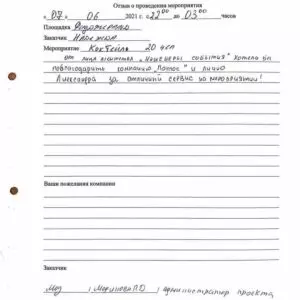 Отзыв о проведении мероприятия
« 07 » 06 2021 г. с 22⁰⁰ до 03⁰⁰ часов
Площадка
Заказчик Надежда
Мероприятие Коктейль 20 чел
от лица агентства "Инженеры события" хотела бы
поблагодарить компанию "Лотос" и лично
Александра за отличный сервис на мероприятии!
Ваши пожелания компании
Заказчик
администратор проекта